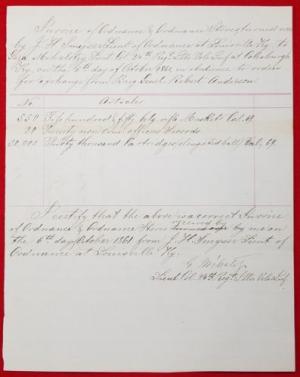 Invoice of Ordnance & Ordnance Stores turned over
by J. H. Lieut of Ordnance at Louisville Ky. to
Geza Mihalotzy Lieut Col. 24th Regt Ills Vols Inf at Colesburgh
Ky. on the 6th day of October 1861 in obedience to order
for exchange from Brig Genl Robert Anderson
No Articles
550 Five hundred & fifty Muskets Cal. 69
29 Twenty nine non com. officers Swords
20,000 Twenty thousand Cartridges (elongated ball) Cal. 69.
I certify that the above is a correct Invoice
of Ordnance & Ordnance Stores received by me on
the 6th day October 1861 from J. H. Lieut of
Ordnance at Louisville Ky.
G Mihalotzy
Lieut Col. 24th Regt Ills Vols Inf.